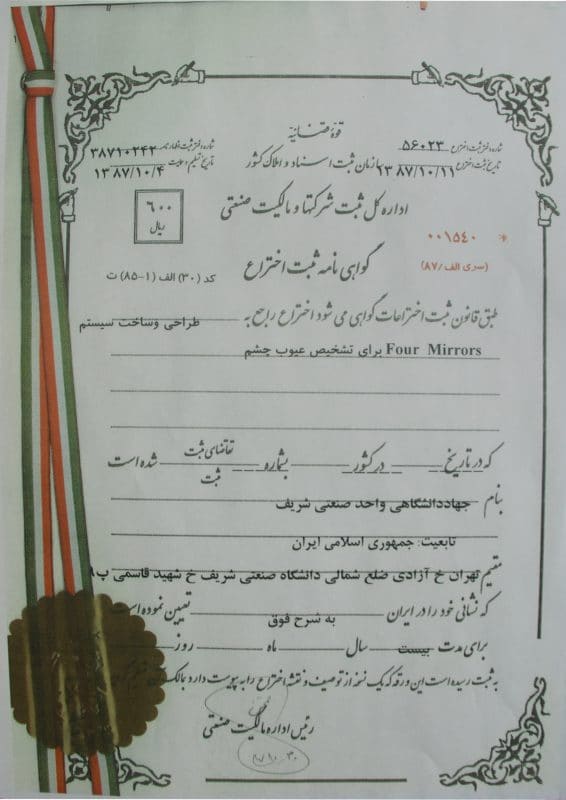 قوه قضائیه
شماره دفتر ثبت اختراع ۵۶۰۲۳
تاریخ ثبت اختراع ۱۳۸۷/۱۰/۱۱
سازمان ثبت اسناد و املاک کشور
شماره دفتر ثبت اظهارنامه ۳۸۷۱۰۲۴۲
تاریخ تسلیم ۱۳۸۷/۱۰/۴
اداره کل ثبت شرکتها و مالکیت صنعتی
۶۰۰
ریال
* ۰۰۱۵۴۰
(سری الف/۸۷)
گواهی نامه ثبت اختراع
کد (۳۰) الف (۱-۸۵) ت
طبق قانون ثبت اختراعات گواهی می شود اختراع راجع به طراحی وساخت سیستم
Four Mirrors برای تشخیص عیوب چشم
که در تاریخ در کشور بشماره تقاضای ثبت شده است
ثبت
بنام جهاددانشگاهی واحد صنعتی شریف
تابعیت: جمهوری اسلامی ایران
مقیم تهران خ آزادی ضلع شمالی دانشگاه صنعتی شریف خ شهید قاسمی پ
که نشانی خود را در ایران به شرح فوق تعیین نموده
برای مدت بیست سال ماه روز
به ثبت رسیده است این ورقه که یک نسخه از توصیف و نقشه اختراع را به پیوست دارد
رئیس اداره مالکیت صنعتی